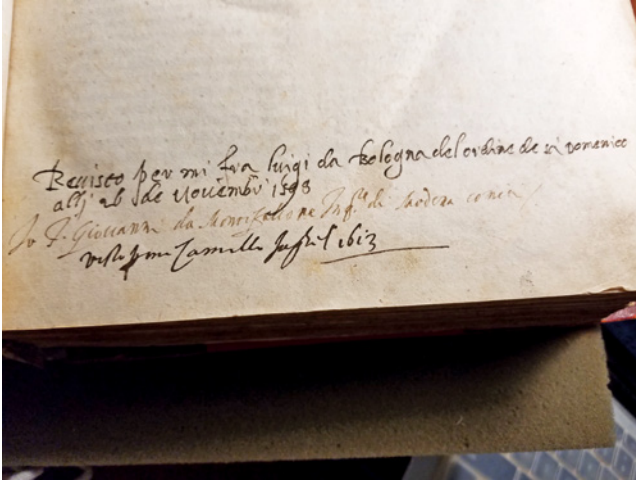 Reuisto per mi fra luigi da Bologna del ordine de sã Domenico
alli 26 de Nouembri 1598
Io F. Giouanni da Montefalcone Inq.re di Modena
visto per me Camillo 1613